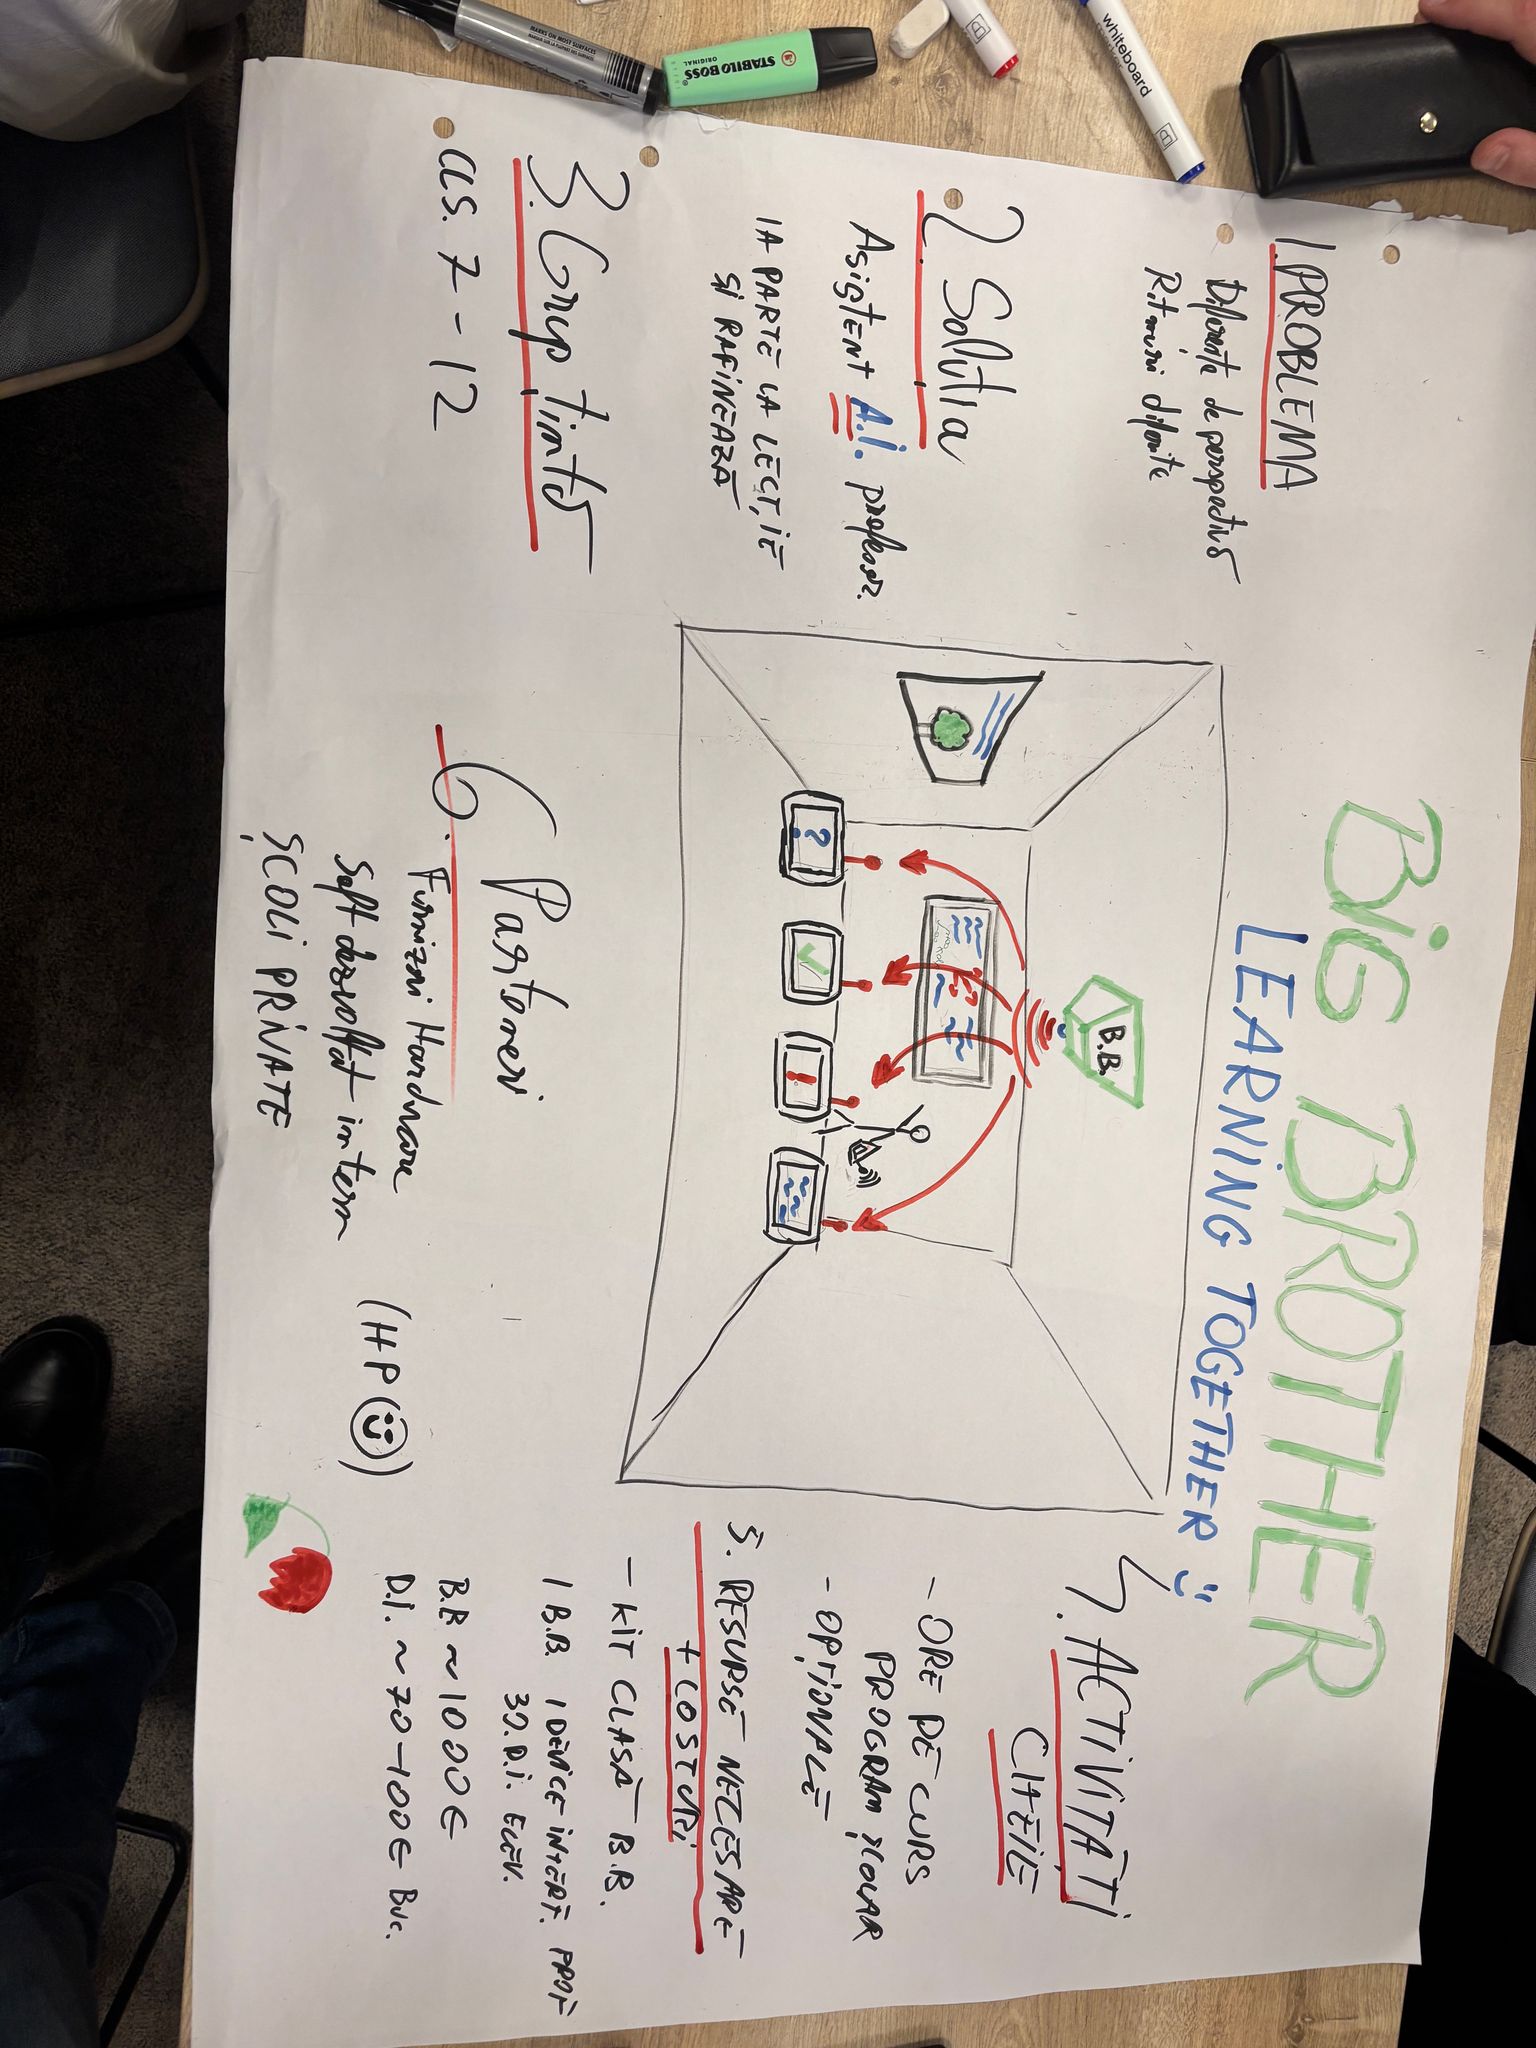 BIG BROTHER
LEARNING TOGETHER
1. PROBLEMA
Diferențe de perspectivă
Ritmuri diferite
2. Soluția
Asistent A.I. profesor.
IA PARTE LA LECȚIE
ȘI RAFINEAZĂ
3. Grup țintă
CLS. 7 - 12
B.B.
?
!
4. ACTIVITĂȚI
CHEIE
- ORE PE CURS
PROGRAM ȘCOLAR
- OPȚIONALE
5. RESURSE NECESARE
+ COSTURI
- KIT CLASĂ B.B.
1 B.B. 1 DEVICE INTERF. PROF
30. D.I. ELEV.
B.B ~ 1000€
D.I. ~ 70-100€ BUC.
6. Parteneri
Furnizori Hardware
Soft dezvoltat intern
ȘCOLI PRIVATE
(HP)
STABILO BOSS
ORIGINAL
whiteboard
MARKS ON MOST SURFACES